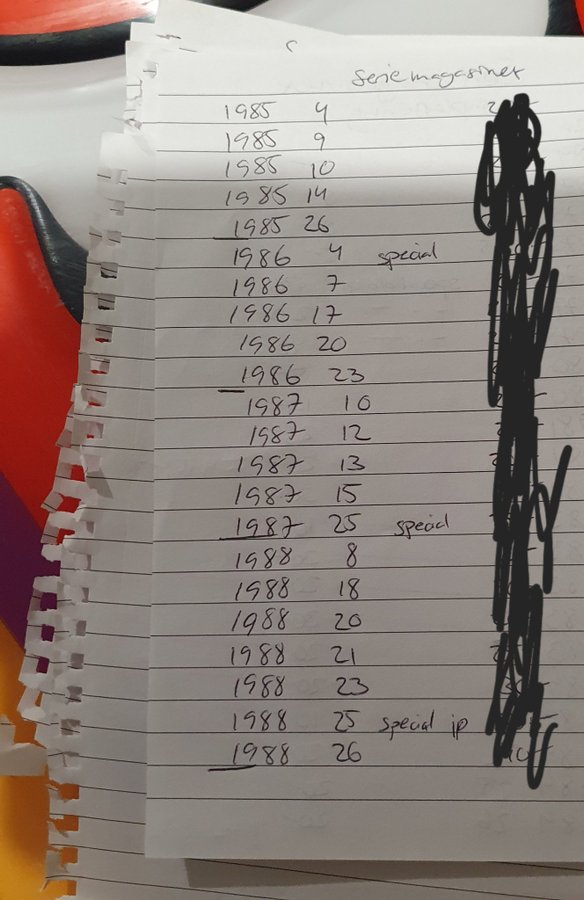 Seriemagasinet
1985 4
1985 9
1985 10
1985 14
1985 26
1986 4 special
1986 7
1986 17
1986 20
1986 23
1987 10
1987 12
1987 13
1987 15
1987 25 special
1988 8
1988 18
1988 20
1988 21
1988 23
1988 25 special ip
1988 26